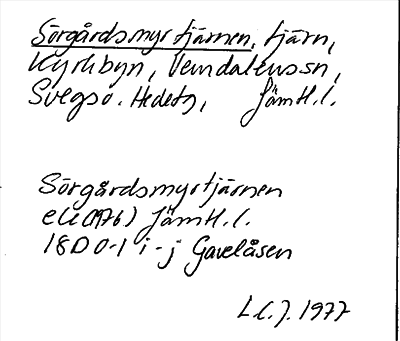 Sörgårdsmyrtjärnen, tjärn,
Kyrkbyn, Vemdalens sn,
Svegs o. Hedets, Jämtl. l.
Sörgårdsmyrtjärnen
ek (1976) Jämtl. l.
18D 0-1 i-j Gavelåsen
L.C.J. 1977